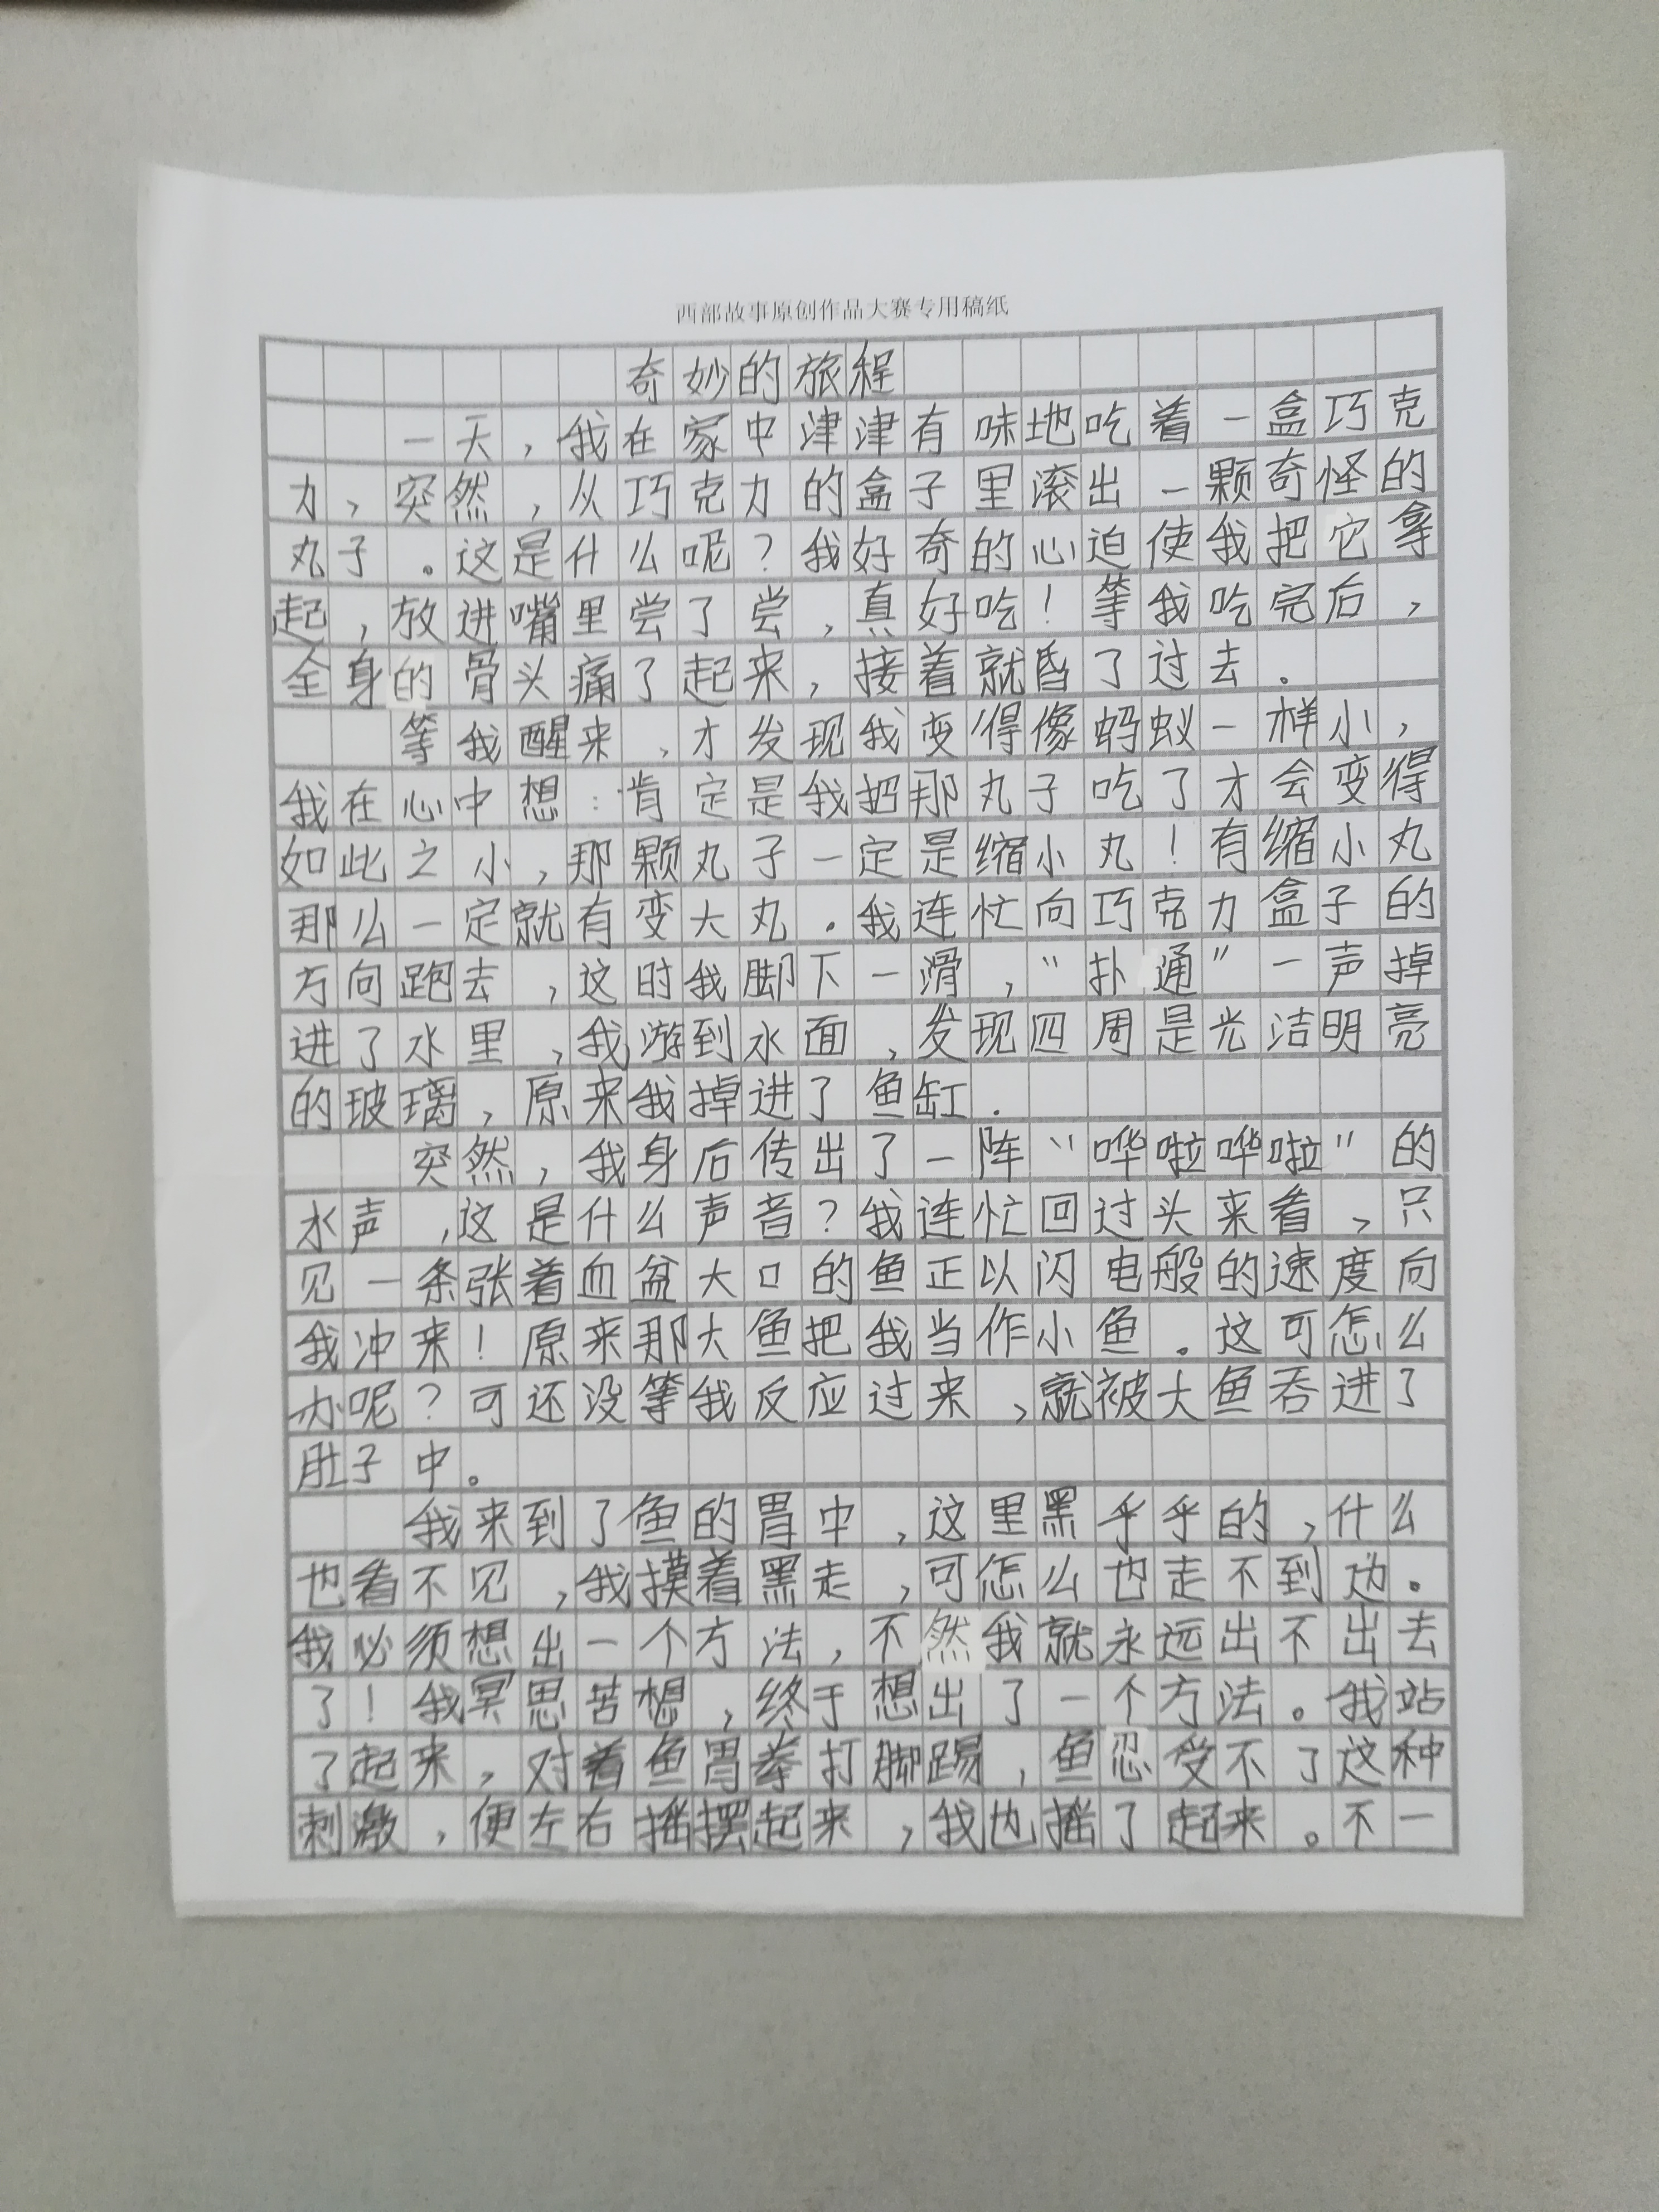 西部故事原创作品大赛专用稿纸
奇妙的旅程
一天，我在家中津津有味地吃着一盒巧克
力，突然，从巧克力的盒子里滚出一颗奇怪的
丸子。这是什么呢？我好奇的心迫使我把它拿
起，放进嘴里尝了尝，真好吃！等我吃完后，
全身的骨头痛了起来，接着就昏了过去。
等我醒来，才发现我变得像蚂蚁一样小，
我在心中想：肯定是我把那丸子吃了才会变得
如此之小，那颗丸子一定是缩小丸！有缩小丸
那么一定就有变大丸。我连忙向巧克力盒子的
方向跑去，这时我脚下一滑，“扑通”一声掉
进了水里，我游到水面，发现四周是光洁明亮
的玻璃，原来我掉进了鱼缸.
突然，我身后传出了一阵“哗啦哗啦”的
水声，这是什么声音？我连忙回过头来看，只
见一条张着血盆大口的鱼正以闪电般的速度向
我冲来！原来那大鱼把我当作小鱼。这可怎么
办呢？可还没等我反应过来，就被大鱼吞进了
肚子中。
我来到了鱼的胃中，这里黑乎乎的，什么
也看不见，我摸着黑走，可怎么也走不到边。
我必须想出一个方法，不然我就永远出不出去
了！我冥思苦想，终于想出了一个方法。我站
了起来，对着鱼胃拳打脚踢，鱼忍受不了这种
刺激，便左右摇摆起来，我也摇了起来。不一